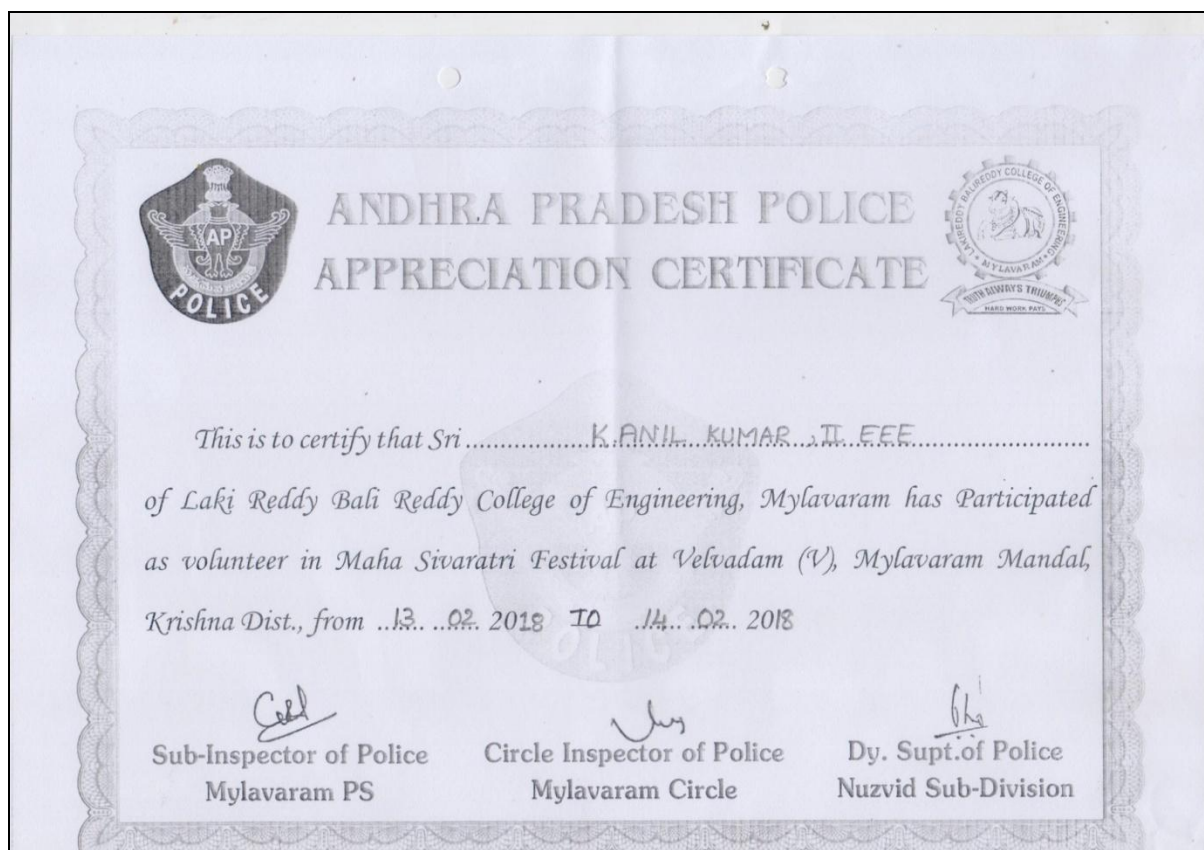 ANDHRA PRADESH POLICE
APPRECIATION CERTIFICATE
AP
POLICE
LAKIREDDY BALIREDDY COLLEGE OF ENGINEERING
MYLAVARAM
TRUTH ALWAYS TRIUMPHS
HARD WORK PAYS
This is to certify that Sri ................. K.ANIL KUMAR , II EEE .................
of Laki Reddy Bali Reddy College of Engineering, Mylavaram has Participated
as volunteer in Maha Sivaratri Festival at Velvadam (V), Mylavaram Mandal,
Krishna Dist., from ..13.. ..02.. 2018 TO ..14.. ..02.. 2018
POLICE
Sub-Inspector of Police
Mylavaram PS
Circle Inspector of Police
Mylavaram Circle
Dy. Supt.of Police
Nuzvid Sub-Division